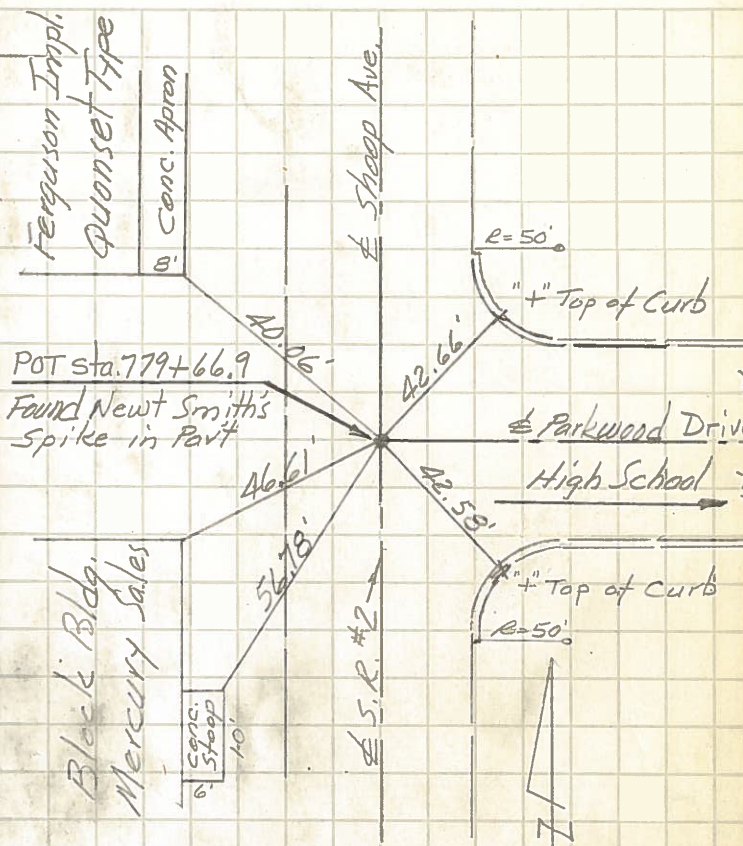 Ferguson Impl.
Quonset Type
Conc. Apron
8'
℄ Shoop Ave.
R=50'
"+" Top of Curb
40.06'
42.66'
POT sta. 779+66.9
Found Newt Smith's
Spike in Pav't
℄ Parkwood Drive
High School
46.61'
42.58'
56.78'
"+" Top of Curb
R=50'
Block Bldg.
Mercury Sales
conc.
Stoop
10'
6'
℄ S.R. #2
N